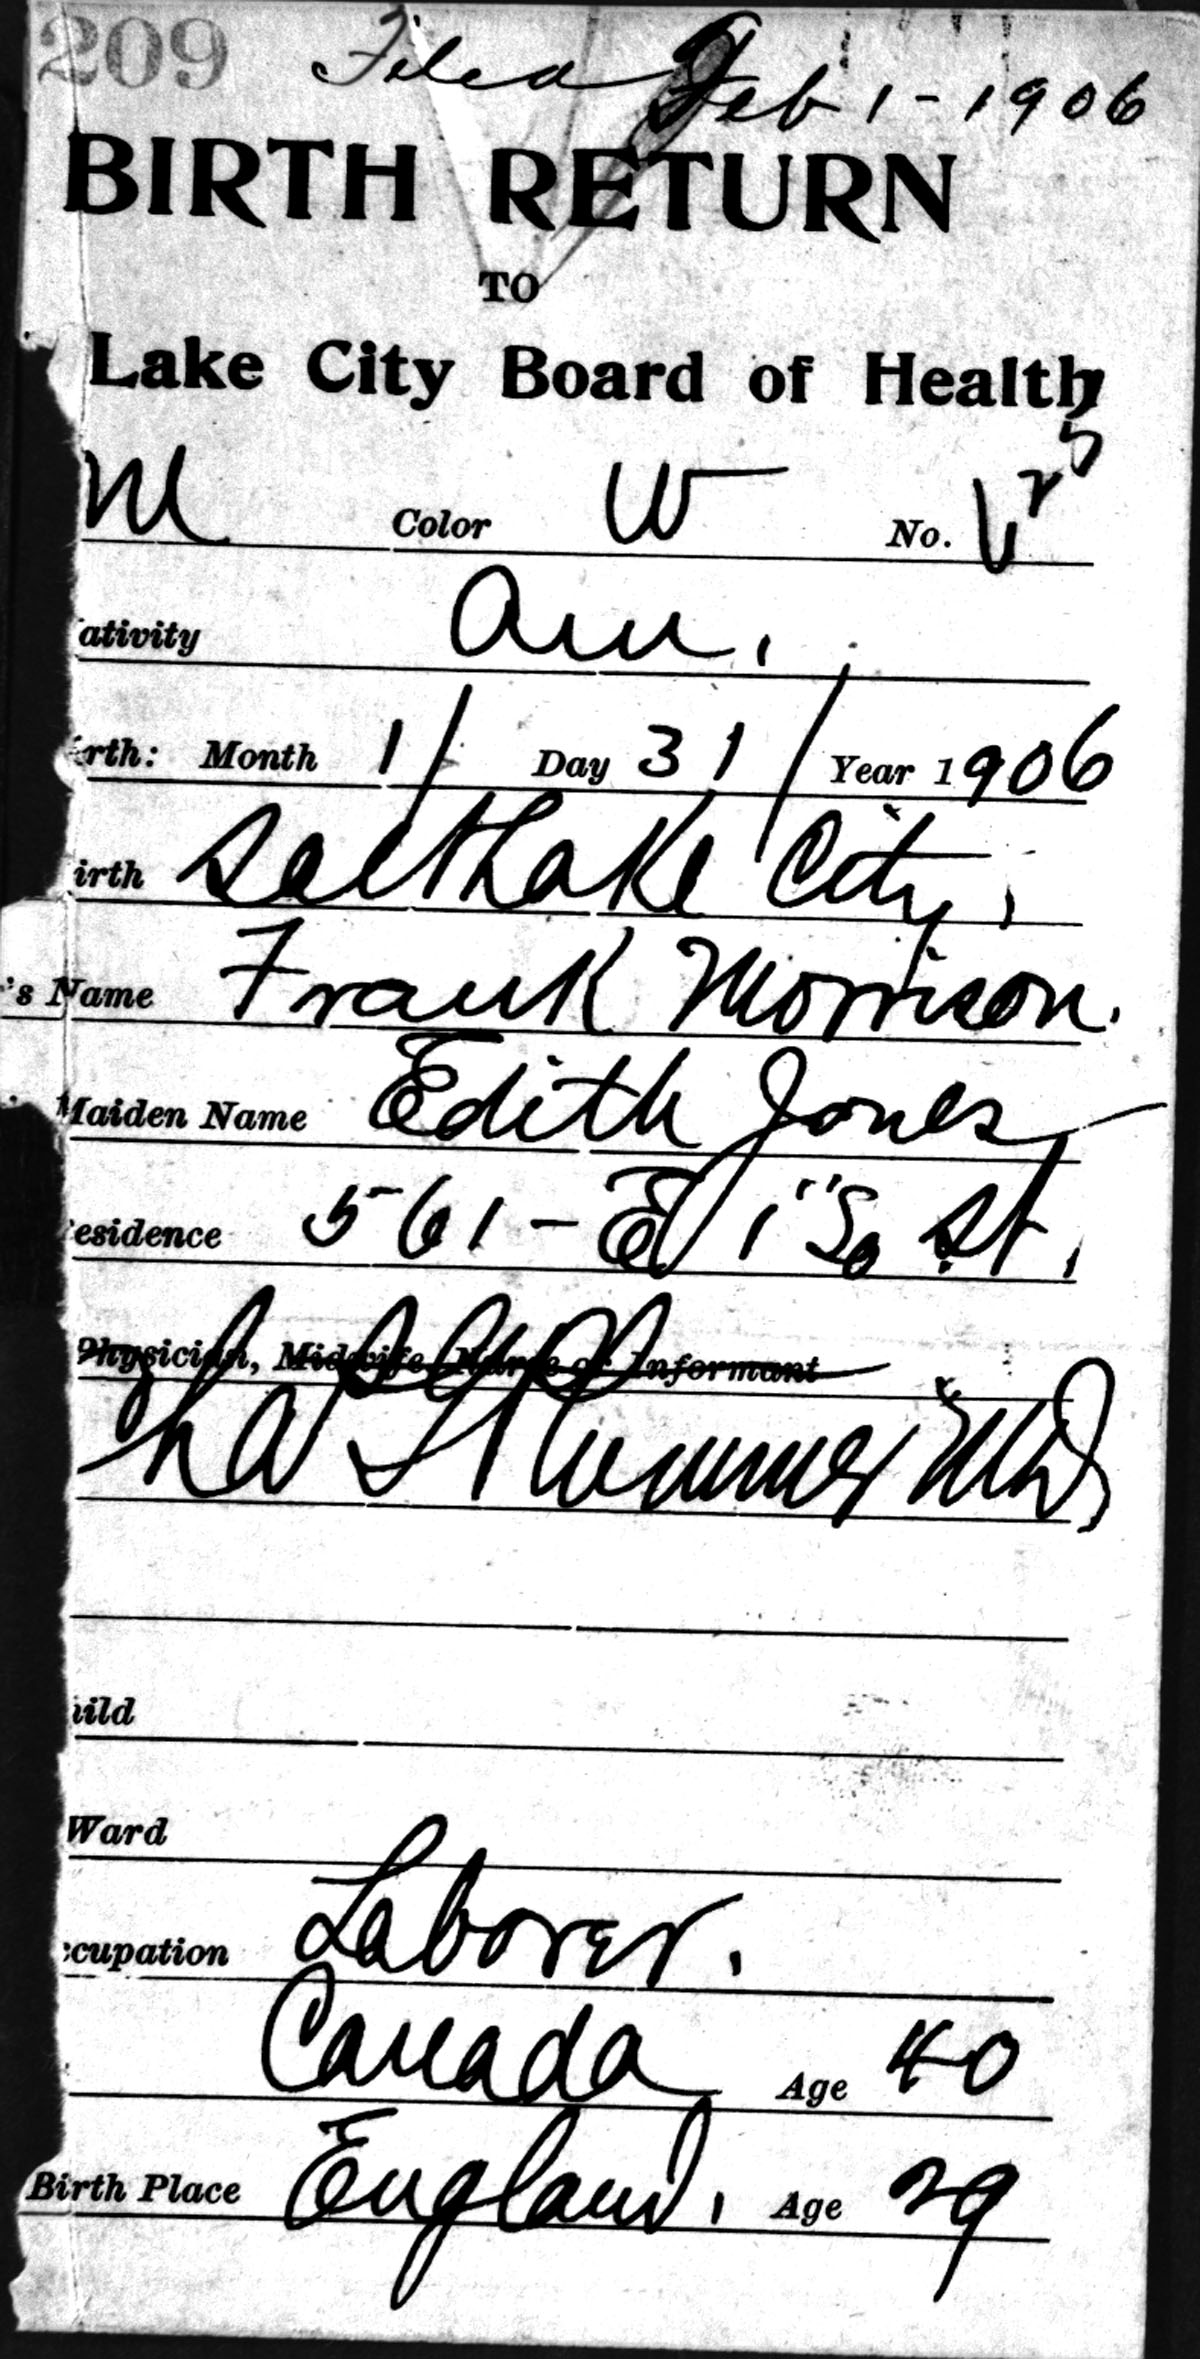 209 Filed Feb 1-1906
BIRTH RETURN
TO
Lake City Board of Health
M Color W No.
ativity Am.
rth: Month 1/ Day 31/ Year 1906
irth Salt Lake City,
's Name Frank Morrison.
Maiden Name Edith Jones
esidence 561-E 1" So St.
Physician, Midwife, Nurse or Informant
Plummer MD
ild
Ward
ccupation Laborer.
Canada Age 40
Birth Place England. Age 29